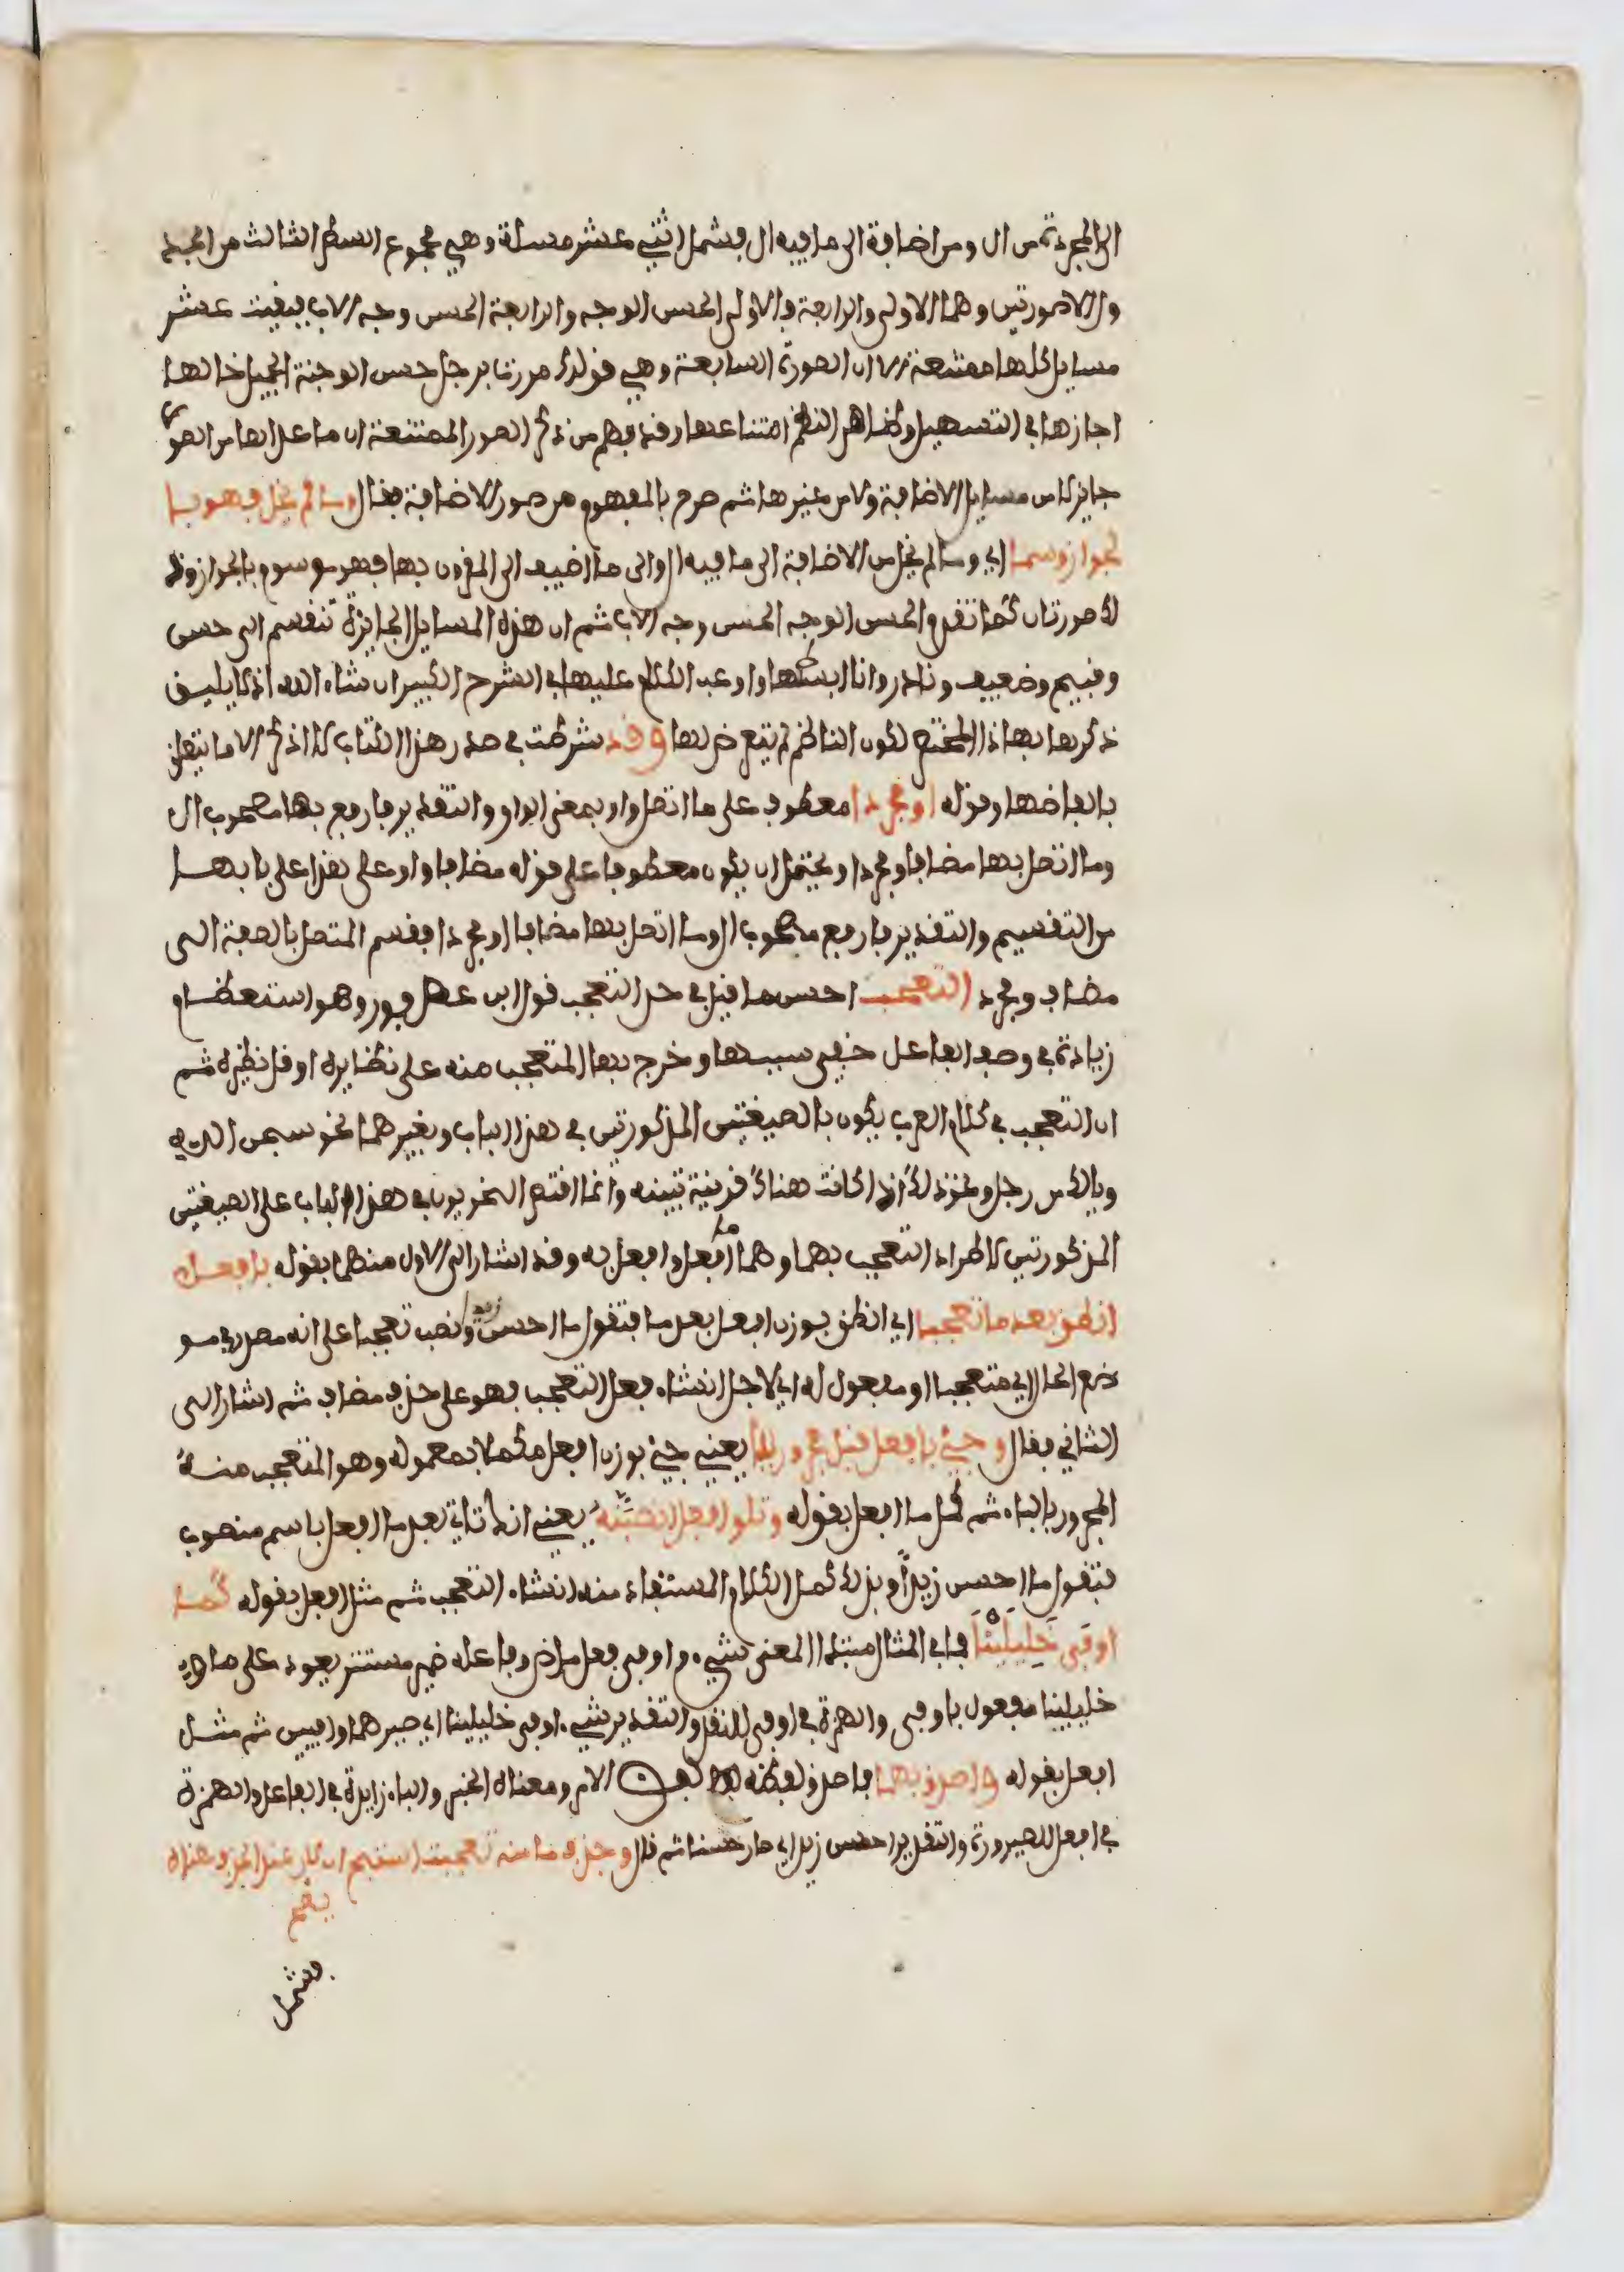 ال المجردة من ال ومن اضافة الى ما فيه ال فشمل اثنتي عشر مسئلة وهي مجموع السطر الثالث من الجد
ول الا صورتين وهما الاولى والرابعة فالاولى الحسن الوجه والرابعة الحسن وجه الاب فبقيت عشر
مسايل كلها ممتنعة الا ان الصورة السابعة وهي قولك مررت برجل حسن الوجنة الجميل خالها
اجازها في التسهيل وظاهر النظم امتناعها وقد فهم من ذكر الصور الممتنعة ان ما عداها من الصور
جايز لا من مسايل الاضافة ولا من غيرها ثم صرح بالمفهوم من صور الاضافة فقال وما لم يخل فهو با
لجواز وسما اي وما لم يخل من الاضافة الى ما فيه ال والى ما اضيف الى المقرون بها فهو موسوم بالجواز وذ
لك صورتان كما تقدم الحسن الوجه الحسن وجه الاب ثم ان هذه المسايل الجايزة تنقسم الى حسن
وقبيح وضعيف ونادر وانا ابسطها واوعب الكلام عليها في الشرح الكبير ان شاء الله اذ لا يليق
ذكرها بهاذا المختصر لكون الناظم لم يتعرض لها وقد شرطت في صدر هذا الكتاب لا اذكر الا ما يتعلق
بالفاظها وقوله او مجردا معطوف على ما اتصل واو بمعنى الواو والتقدير فارفع بها مصحوب ال
وما اتصل بها مضافا ومجردا ويحتمل ان يكون معطوفا على قوله مضافا واو على هذا على بابها
من التقسيم والتقدير فارفع مصحوب ال وما اتصل بها مضافا او مجردا فقسم المتصل بالصفة الى
مضاف ومجرد التعجب احسن ما قيل في حد التعجب قول ابن عصفور وهو استعظام
زيادة في وصف الفاعل خفي سببها وخرج بها المتعجب منه على نظايره او قل نظيره ثم
ان التعجب في كلام العرب يكون بالصيغتين المذكورتين في هذا الباب وبغيرهما نحو سبحن الله
ويالك من رجل ونحو ذلك اذا كانت هناك قرينة تبينه وانما اقتصر النحويون في هذا الباب على الصيغتين
المذكورتين لاطراد التعجب بهما وهما ما افعل وافعل به وقد اشار الى الاول منهما بقوله بافعل
انطق بعد ما تعجبا اي انطق بوزن افعل بعد ما فتقول ما احسن زيدا ونصب تعجبا على انه مصدر في مو
ضع الحال اي متعجبا او مفعول له اي لاجل انشاء فعل التعجب فهو على حذف مضاف ثم اشار الى
الثاني فقال او جئ بافعل قبل مجرور ببا يعني جئ بوزن افعل مكملا بمعموله وهو المتعجب منه
المجرور بالباء ثم كمل ما افعل بقوله وتلو افعل انصبنه يعني انك تاتي بعد ما افعل باسم منصوب
فتقول ما احسن زيدا وبذلك كمل الكلام المستفاد منه انشاء التعجب ثم مثل افعل بقوله كما
اوفى خليلينا فما في المثال مبتدا المعنى شيء واوفى فعل ماض وفاعله ضمير مستتر يعود على ما و
خليلينا مفعول باوفى والهمزة في اوفى للنقل والتقدير شيء اوفى خليلينا اي صيرهما وافيين ثم مثل
افعل بقوله واصدق بهما فاصدق لفظه لفظ الامر ومعناه الخبر والباء زايدة في الفاعل والهمزة
في افعل للصيرورة والتقدير احسن زيد اي صار حسنا ثم قال وحذف ما منه تعجبت استبح ان كان عند الحذف معناه
يضح
فشمل